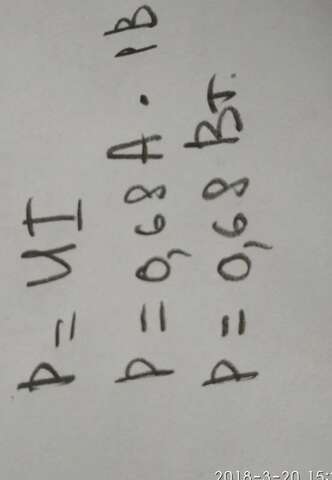 P = UI
P = 0,68 A · 1В
P = 0,68 Вт.
2018-3-20 15: